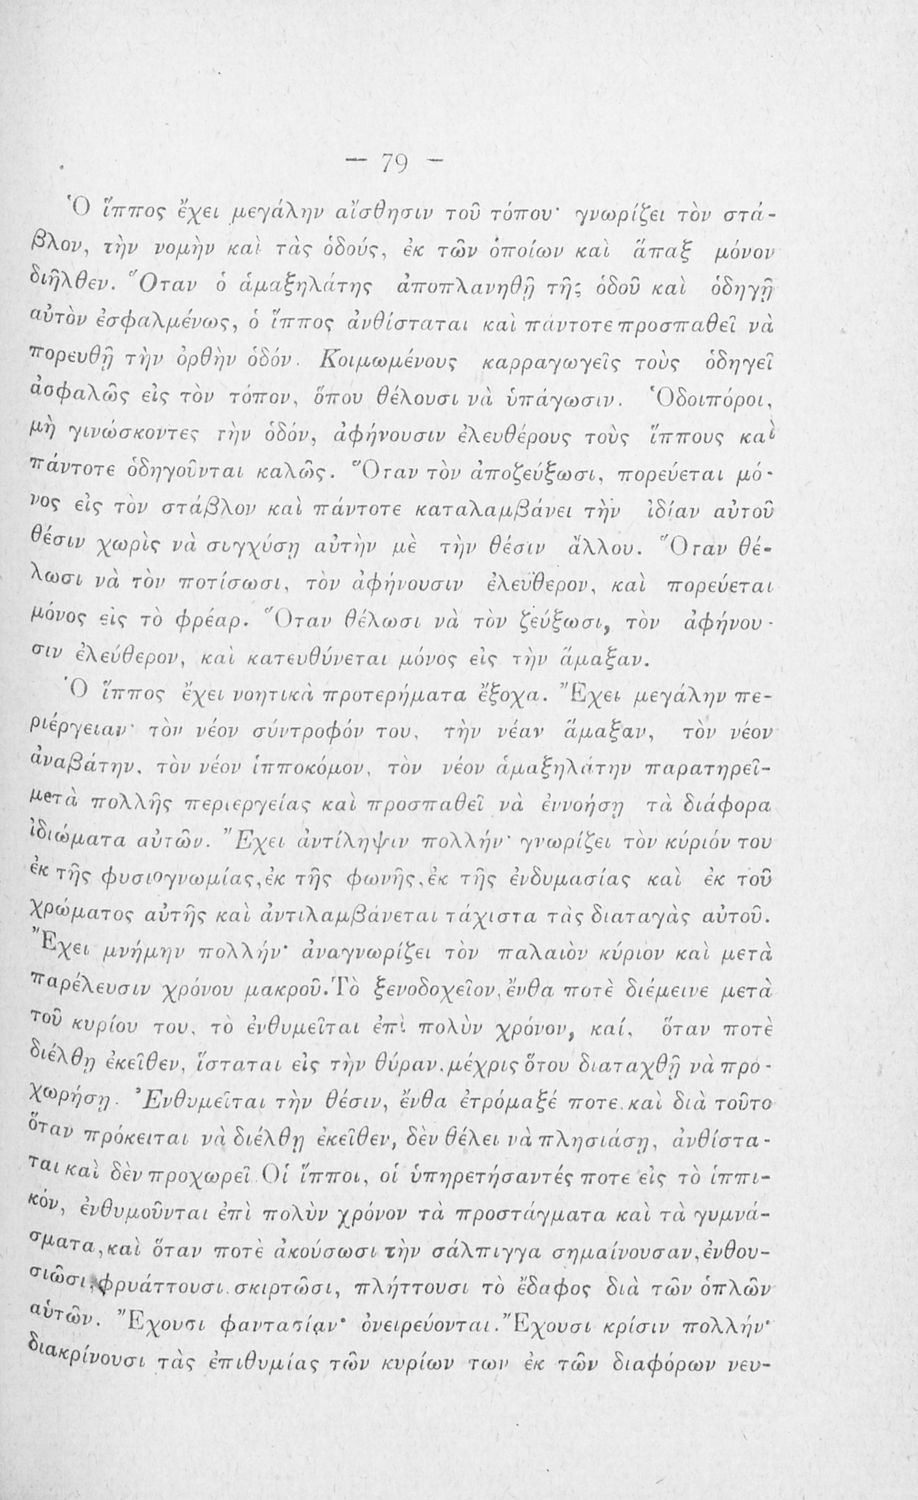 — 79 —
Ὁ ἵππος ἔχει μεγάλην αἴσθησιν τοῦ τόπου· γνωρίζει τὸν στά-
βλον, τὴν νομὴν καὶ τὰς ὁδούς, ἐκ τῶν ὁποίων καὶ ἅπαξ μόνον
διῆλθεν. Ὅταν ὁ ἁμαξηλάτης ἀποπλανηθῇ τῆς ὁδοῦ καὶ ὁδηγῇ
αὐτὸν ἐσφαλμένως, ὁ ἵππος ἀνθίσταται καὶ πάντοτε προσπαθεῖ νὰ
πορευθῇ τὴν ὀρθὴν ὁδόν. Κοιμωμένους καρραγωγεῖς τοὺς ὁδηγεῖ
ἀσφαλῶς εἰς τὸν τόπον, ὅπου θέλουσι νὰ ὑπάγωσιν. Ὁδοιπόροι,
μὴ γινώσκοντες τὴν ὁδόν, ἀφήνουσιν ἐλευθέρους τοὺς ἵππους καὶ
πάντοτε ὁδηγοῦνται καλῶς. Ὅταν τὸν ἀποζεύξωσι, πορεύεται μό-
νος εἰς τὸν στάβλον καὶ πάντοτε καταλαμβάνει τὴν ἰδίαν αὐτοῦ
θέσιν χωρὶς νὰ συγχύσῃ αὐτὴν μὲ τὴν θέσιν ἄλλου. Ὅταν θέ-
λωσι νὰ τὸν ποτίσωσι, τὸν ἀφήνουσιν ἐλεύθερον, καὶ πορεύεται
μόνος εἰς τὸ φρέαρ. Ὅταν θέλωσι νὰ τὸν ζεύξωσι, τὸν ἀφήνου-
σιν ἐλεύθερον, καὶ κατευθύνεται μόνος εἰς τὴν ἅμαξαν.
Ὁ ἵππος ἔχει νοητικὰ προτερήματα ἔξοχα. Ἔχει μεγάλην πε-
ριέργειαν· τὸν νέον σύντροφόν του, τὴν νέαν ἅμαξαν, τὸν νέον
ἀναβάτην, τὸν νέον ἱπποκόμον, τὸν νέον ἁμαξηλάτην παρατηρεῖ-
μετὰ πολλῆς περιεργείας καὶ προσπαθεῖ νὰ ἐννοήσῃ τὰ διάφορα
ἰδιώματα αὐτῶν. Ἔχει ἀντίληψιν πολλήν· γνωρίζει τὸν κύριόν του
ἐκ τῆς φυσιογνωμίας, ἐκ τῆς φωνῆς, ἐκ τῆς ἐνδυμασίας καὶ ἐκ τοῦ
χρώματος αὐτῆς καὶ ἀντιλαμβάνεται τάχιστα τὰς διαταγὰς αὐτοῦ.
Ἔχει μνήμην πολλήν· ἀναγνωρίζει τὸν παλαιὸν κύριον καὶ μετὰ
παρέλευσιν χρόνου μακροῦ. Τὸ ξενοδοχεῖον, ἔνθα ποτὲ διέμεινε μετὰ
τοῦ κυρίου του, τὸ ἐνθυμεῖται ἐπὶ πολὺν χρόνον, καί, ὅταν ποτὲ
διέλθῃ ἐκεῖθεν, ἵσταται εἰς τὴν θύραν, μέχρις ὅτου διαταχθῇ νὰ προ-
χωρήσῃ. Ἐνθυμεῖται τὴν θέσιν, ἔνθα ἐτρόμαξέ ποτε, καὶ διὰ τοῦτο
ὅταν πρόκειται νὰ διέλθῃ ἐκεῖθεν, δὲν θέλει νὰ πλησιάσῃ, ἀνθίστα-
ται καὶ δὲν προχωρεῖ Οἱ ἵπποι, οἱ ὑπηρετήσαντές ποτε εἰς τὸ ἱππι-
κόν, ἐνθυμοῦνται ἐπὶ πολὺν χρόνον τὰ προστάγματα καὶ τὰ γυμνά-
σματα, καὶ ὅταν ποτὲ ἀκούσωσι τὴν σάλπιγγα σημαίνουσαν, ἐνθου-
σιῶσι, φρυάττουσι, σκιρτῶσι, πλήττουσι τὸ ἔδαφος διὰ τῶν ὁπλῶν
αὑτῶν. Ἔχουσι φαντασίαν· ὀνειρεύονται. Ἔχουσι κρίσιν πολλήν·
διακρίνουσι τὰς ἐπιθυμίας τῶν κυρίων των ἐκ τῶν διαφόρων νευ-